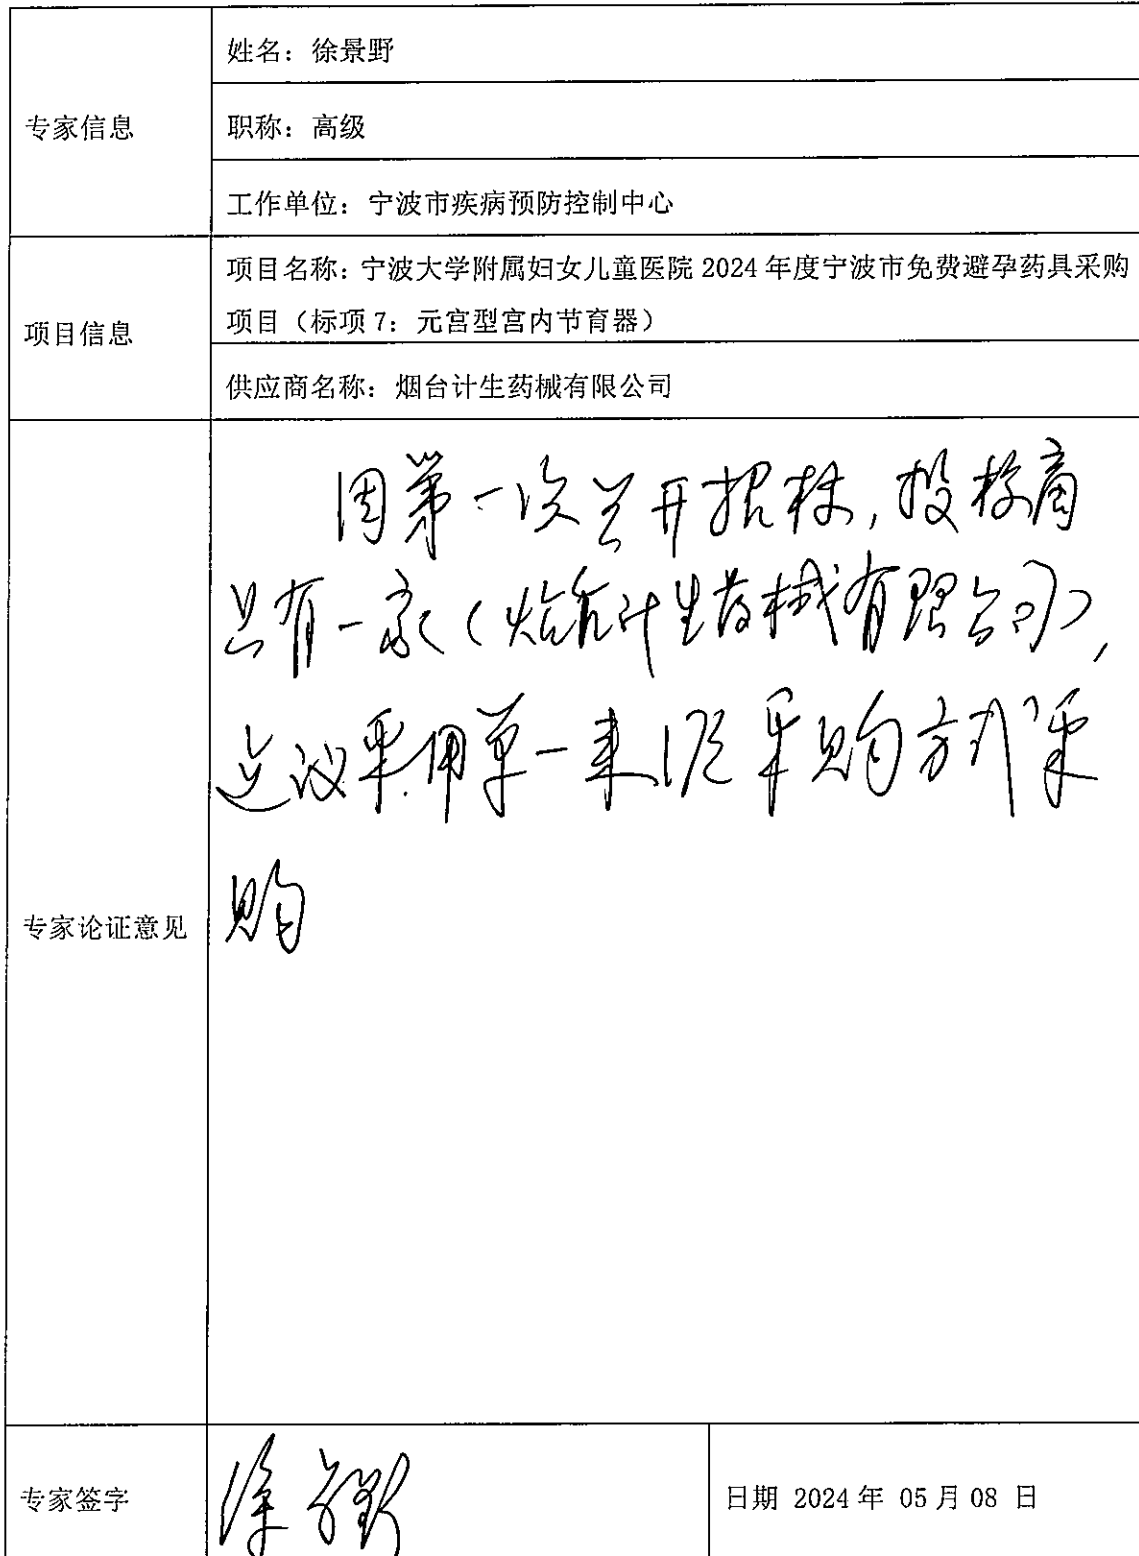 专家信息
姓名：徐景野
职称：高级
工作单位：宁波市疾病预防控制中心
项目信息
项目名称：宁波大学附属妇女儿童医院 2024 年度宁波市免费避孕药具采购
项目（标项 7：元宫型宫内节育器）
供应商名称：烟台计生药械有限公司
专家论证意见
因第一次公开招标，投标商
只有一家（烟台计生药械有限公司），
建议采用单一来源采购方式采
购
专家签字
徐景野
日期 2024 年 05 月 08 日